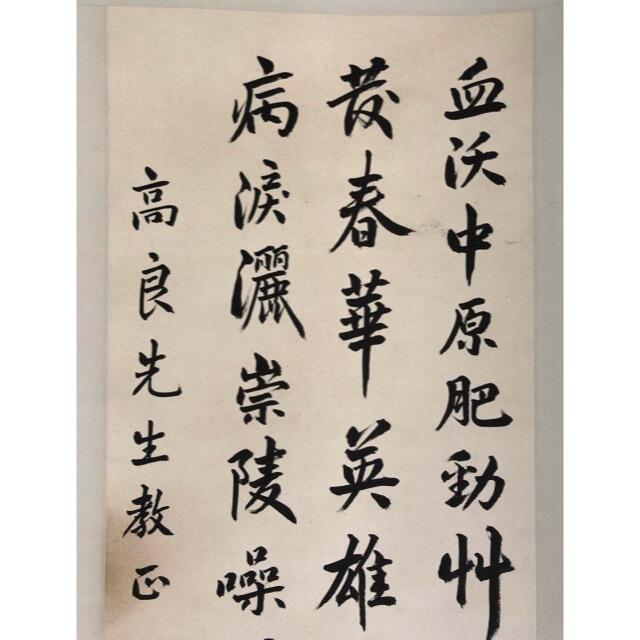 血沃中原肥勁艸
發春華英雄
病淚灑崇陵噪
高良先生教正